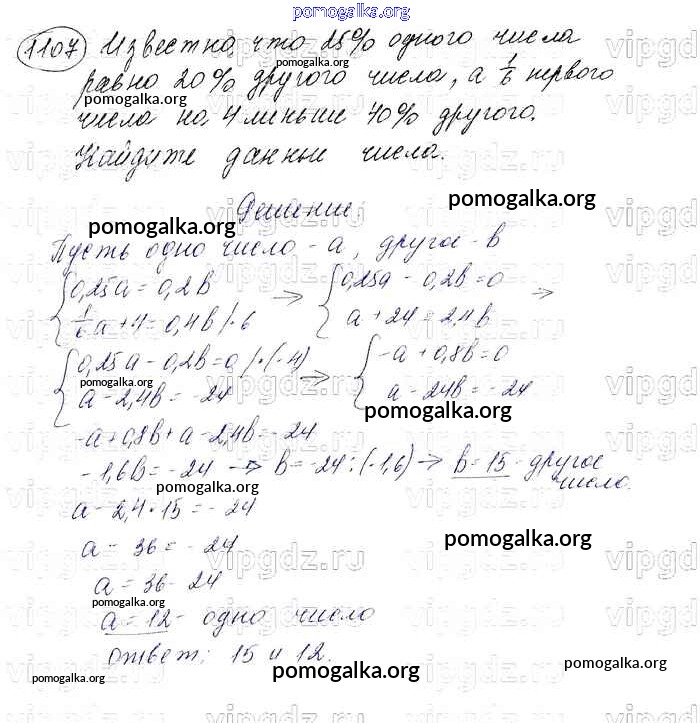 pomogalka.org
1107 Известно, что 25% одного числа
pomogalka.org
равно 20% другого числа, а 1/6 первого
pomogalka.org
числа на 4 меньше 40% другого.
Найдите данные числа.
pomogalka.org
Решение:
pomogalka.org
Пусть одно число - a, другое - b
{ 0,25a = 0,2b → { 0,25a - 0,2b = 0 →
1/6a + 4 = 0,4b | · 6 a + 24 = 2,4b
{ 0,25a - 0,2b = 0 | · (-4) → { -a + 0,8b = 0
pomogalka.org
a - 2,4b = -24 a - 24b = -24
pomogalka.org
-a + 0,8b + a - 2,4b = -24
-1,6b = -24 → b = -24 : (-1,6) → b = 15 - другое
число.
pomogalka.org
a - 2,4 · 15 = -24
a - 36 = -24
pomogalka.org
a = 36 - 24
pomogalka.org
a = 12 - одно число
ответ: 15 и 12.
pomogalka.org
pomogalka.org
pomogalka.org
vipgdz.ru